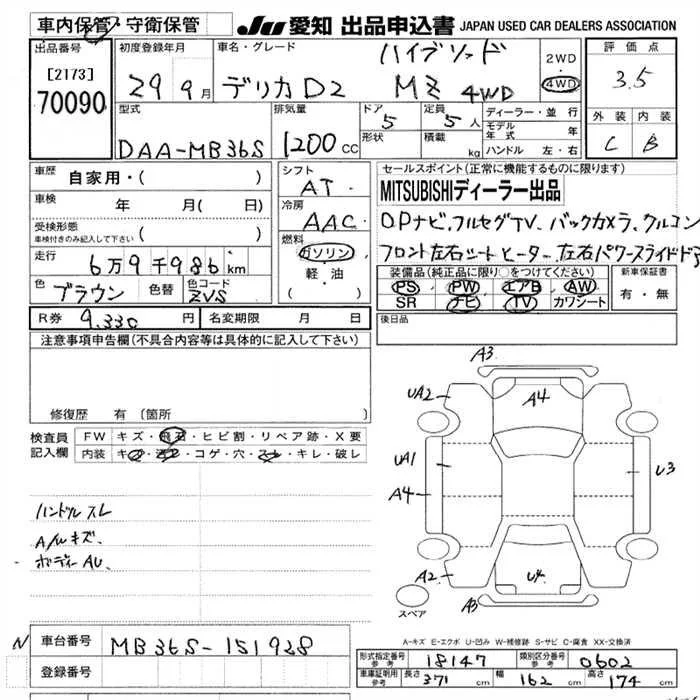 車内保管・守衛保管
JU 愛知 出品申込書 JAPAN USED CAR DEALERS ASSOCIATION
出品番号 初度登録年月 車名・グレード ハイブリッド 2WD 評価点
[2173] 29 9月 デリカD2 MZ 4WD 4WD 3.5
70090 型式 排気量 ドア 5 定員 5人 ディーラー・並行 外装 内装
DAA-MB36S 1200cc 形状 積載 kg モデル年式 年 C B
ハンドル 左・右
車歴 自家用・( ) シフト AT セールスポイント(正常に機能するものに限ります)
車検 年 月( 日) 冷房 AAC MITSUBISHIディーラー出品
受検形態 車検付きのみ記入して下さい ( ) 燃料 O.Pナビ、フルセグTV、バックカメラ、クルコン
走行 6万9千986km ガソリン・軽油 フロント左右シートヒーター、左右パワースライドドア
色 ブラウン 色替 色コード ZVS 装備品(純正品に限り○をつけてください) 新車保証書
PS PW エアB AW 有・無
SR ナビ TV カワシート
R券 9,330円 名変期限 月 日 後日品
注意事項申告欄(不具合内容等は具体的に記入して下さい)
修復歴 有 (箇所
検査員記入欄 FW キズ・飛石・ヒビ割・リペア跡・X要
内装 キズ・汚レ・コゲ・穴・スレ・キレ・破レ
ハンドルスレ
A/Wキズ
ボディーAU
A3
UA2 A4
UA1 U3
A4
A2 U4
A3
スペア
A-キズ E-エクボ U-凹み W-補修跡 S-サビ C-腐食 XX-交換済
N 車台番号 MB36S-151928
登録番号
形式指定番号 参考 18147 類別区分番号 参考 0602
車庫証明用 参考 長さ 371cm 幅 162cm 高さ 174cm